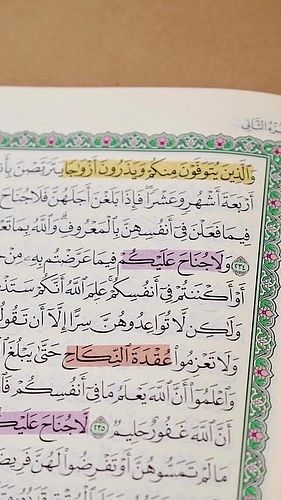 الجزء الثاني
وَالَّذِينَ يُتَوَفَّوْنَ مِنكُمْ وَيَذَرُونَ أَزْوَاجًا يَتَرَبَّصْنَ
أَرْبَعَةَ أَشْهُرٍ وَعَشْرًا فَإِذَا بَلَغْنَ أَجَلَهُنَّ فَلَا جُنَاحَ
فِيمَا فَعَلْنَ فِي أَنفُسِهِنَّ بِالْمَعْرُوفِ وَاللَّهُ بِمَا
٢٣٤ وَلَا جُنَاحَ عَلَيْكُمْ فِيمَا عَرَّضْتُم بِهِ مِنْ
أَوْ أَكْنَنتُمْ فِي أَنفُسِكُمْ عَلِمَ اللَّهُ أَنَّكُمْ
وَلَٰكِن لَّا تُوَاعِدُوهُنَّ سِرًّا إِلَّا أَن
وَلَا تَعْزِمُوا عُقْدَةَ النِّكَاحِ حَتَّىٰ يَبْلُغَ
وَاعْلَمُوا أَنَّ اللَّهَ يَعْلَمُ مَا فِي أَنفُسِكُمْ
أَنَّ اللَّهَ غَفُورٌ حَلِيمٌ ٢٣٥ لَّا جُنَاحَ
مَا لَمْ تَمَسُّوهُنَّ أَوْ تَفْرِضُوا لَهُنَّ